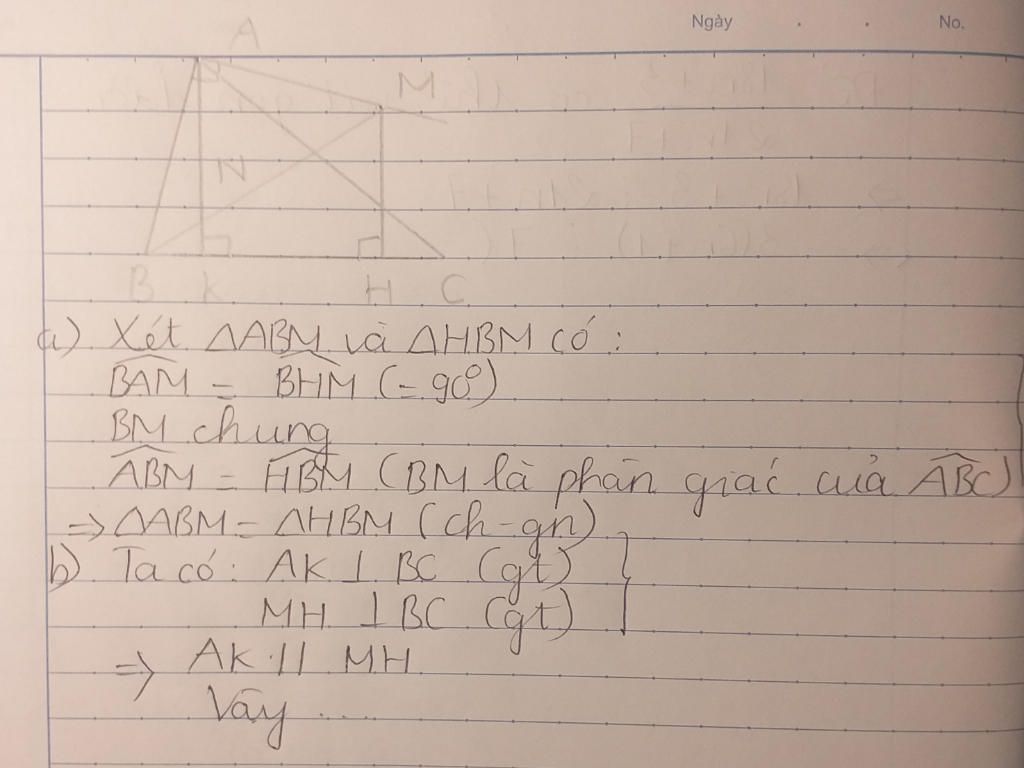 Ngày . . No.
A
M
N
B K H C
a) Xét ΔABM và ΔHBM có :
BAM = BHM (= 90°)
BM chung
ABM = HBM (BM là phân giác của ABC)
=> ΔABM = ΔHBM (ch-gn)
b) Ta có : AK ⊥ BC (gt)
MH ⊥ BC (gt)
=> AK // MH
Vậy ....